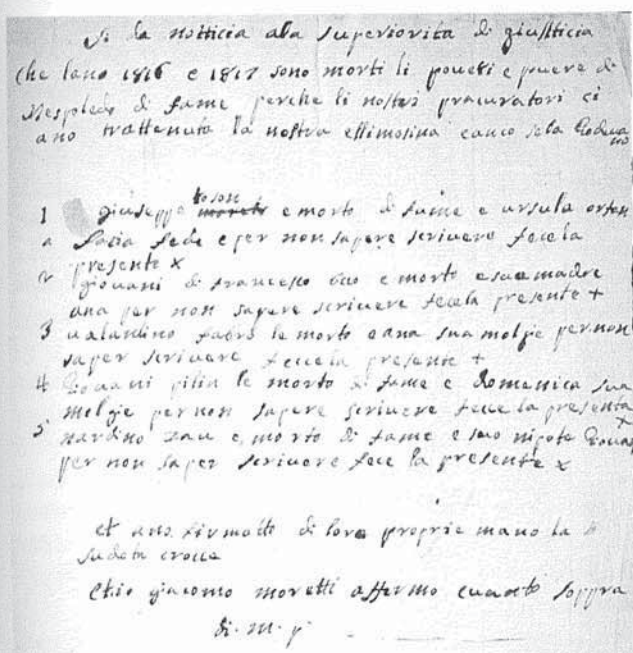 Si da notticia alla superiorita di giustticia
che lano 1816 e 1817 sono morti li poveri e puere di
Nespoledo di fame perche li nostri procuratori ci
ano trattenuto la nostra ellimosina
toson
1 giuseppe moreti e morto di fame e ursula
a facia fede e per non sapere scrivere fecela
presente x
2 giovani di francesco e morto e sue madre
ana per non sapere scrivere fecela presente +
3 valantino fabro le morto e ana sua molgie per non
saper scrivere feccela presente +
4 Govani pilin le morto di fame e domenica sua
molgie per non sapere scrivere fece la presenta
x
5 nardino zau e, morto di fame e suo nipote
per non saper scrivere fece la presente x
et ano firmatto di loro proprie mano la
sudeta crocce
Chio giacomo moretti affermo cuanto soppra
di. m. p.